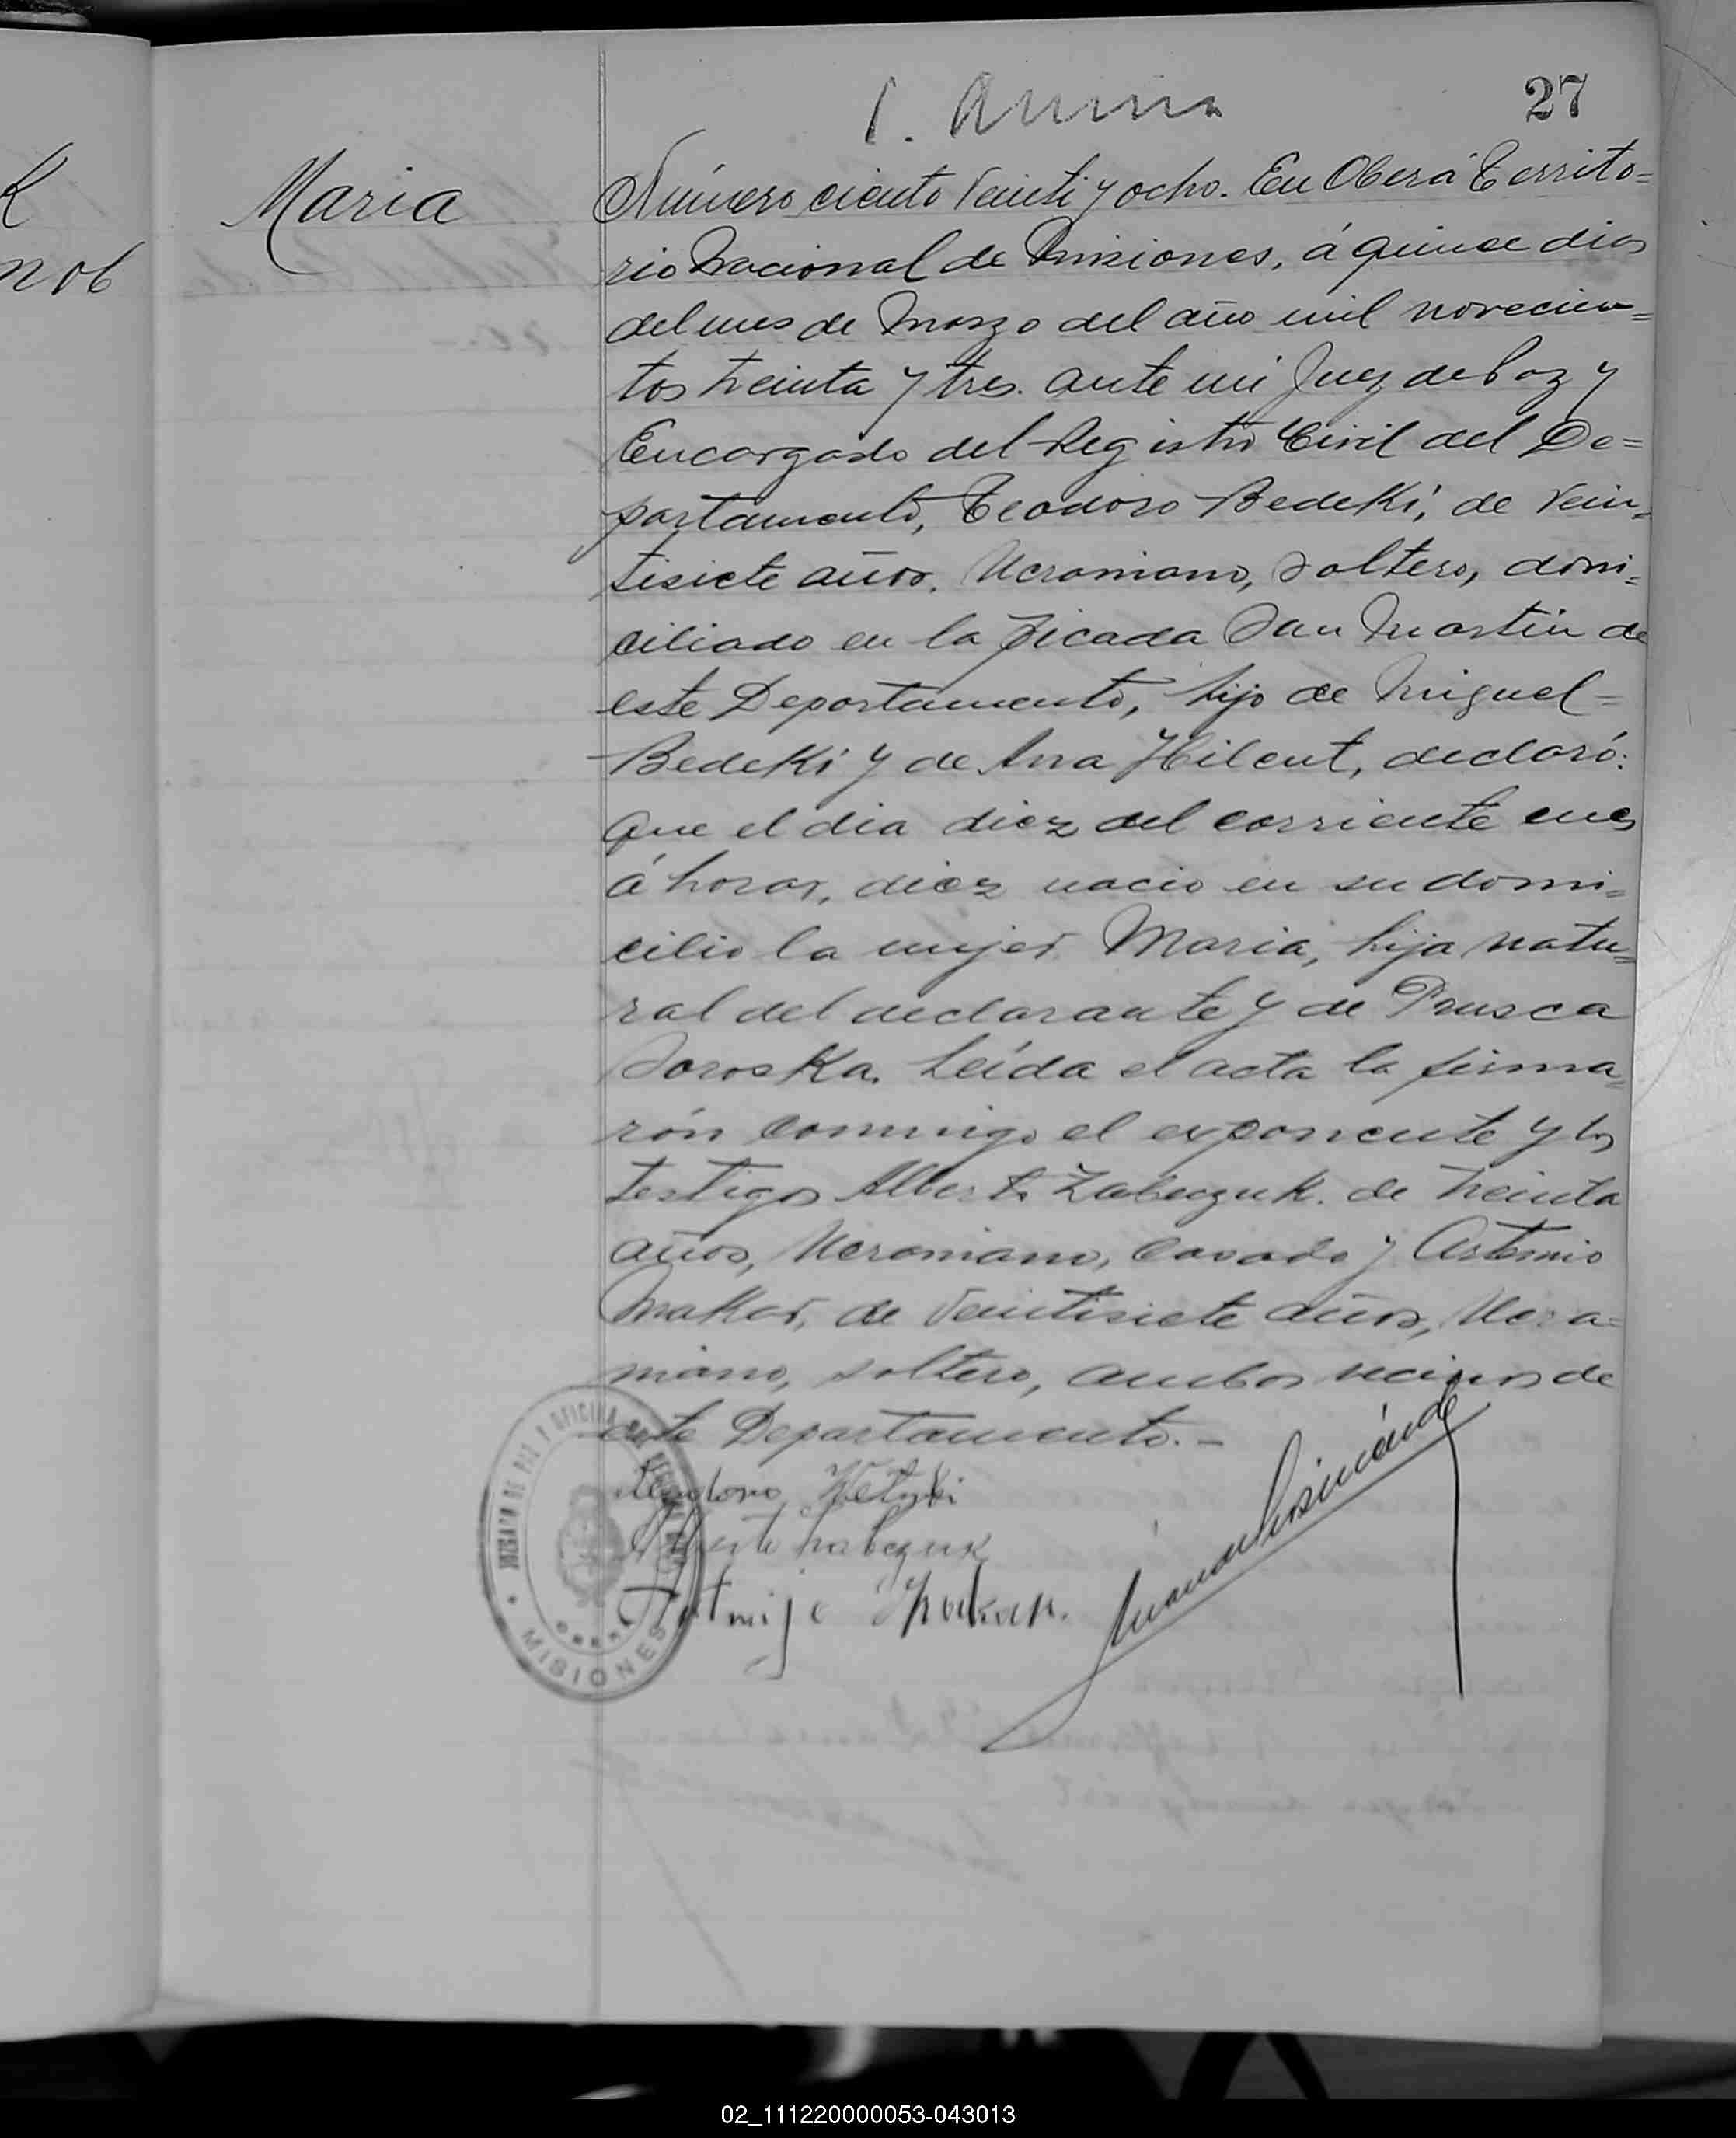 27
K
nob
Maria
Número ciento veinti y ocho. En Oberá Territo=
rio Nacional de Misiones, á quince dias
del mes de Marzo del año mil novecien=
tos treinta y tres. ante mi Juez de Paz y
Encargado del Registro Civil del De=
partamento, Teodoro Bedeki, de vein=
tisiete años, Ucraniano, soltero, domi=
ciliado en la picada San Martin de
este Departamento, hijo de Miguel=
Bedeki y de Ana Hilcut, declaró:
que el dia diez del corriente mes
á horas, diez nacio en su domi=
cilio la mujer Maria, hija natu=
ral del declarante y de Prusca
Soroska. Leída el acta la firma=
rón conmigo el exponente y los
testigos Alberto Zabczuk. de treinta
años, Ucraniano, casado y Artemio
Makar, de veintisiete años, Ucra=
niano, soltero, ambos vecinos de
este Departamento. -
JUZGADO DE PAZ Y OFICINA DEL REGISTRO CIVIL
OBERÁ
MISIONES
02_111220000053-043013